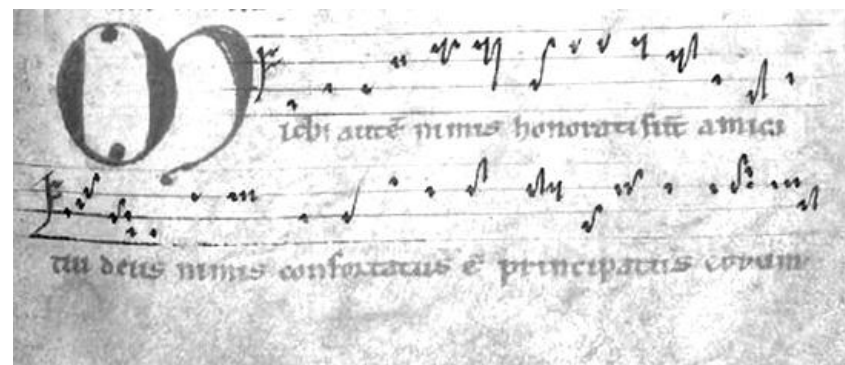 Michi autē nimis honorati sūt amici
tui deus nimis confortatus ē principatus eorum